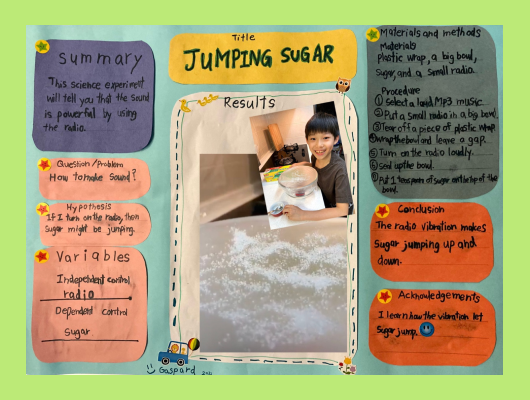 Summary
This science experiment
will tell you that the sound
is powerful by using
the radio.
Question/Problem
How to make sound?
Hypothesis
If I turn on the radio, then
Sugar might be jumping.
Variables
Independent control
radio
Dependent control
sugar
Title
JUMPING SUGAR
Results
Gaspard
Materials and methods
Materials
plastic wrap, a big bowl,
Sugar, and a small radio.
Procedure
① Select a loud MP3 music.
② Put a small radio in a big bowl.
③ Tear off a piece of plastic wrap.
④ Wrap the bowl and leave a gap.
⑤ Turn on the radio loudly.
⑥ Seal up the bowl.
⑦ Put 1 teaspoon of sugar on the top of the
bowl.
Conclusion
The radio vibration makes
sugar jumping up and
down.
Acknowledgements
I learn how the vibration let
Sugar jump.